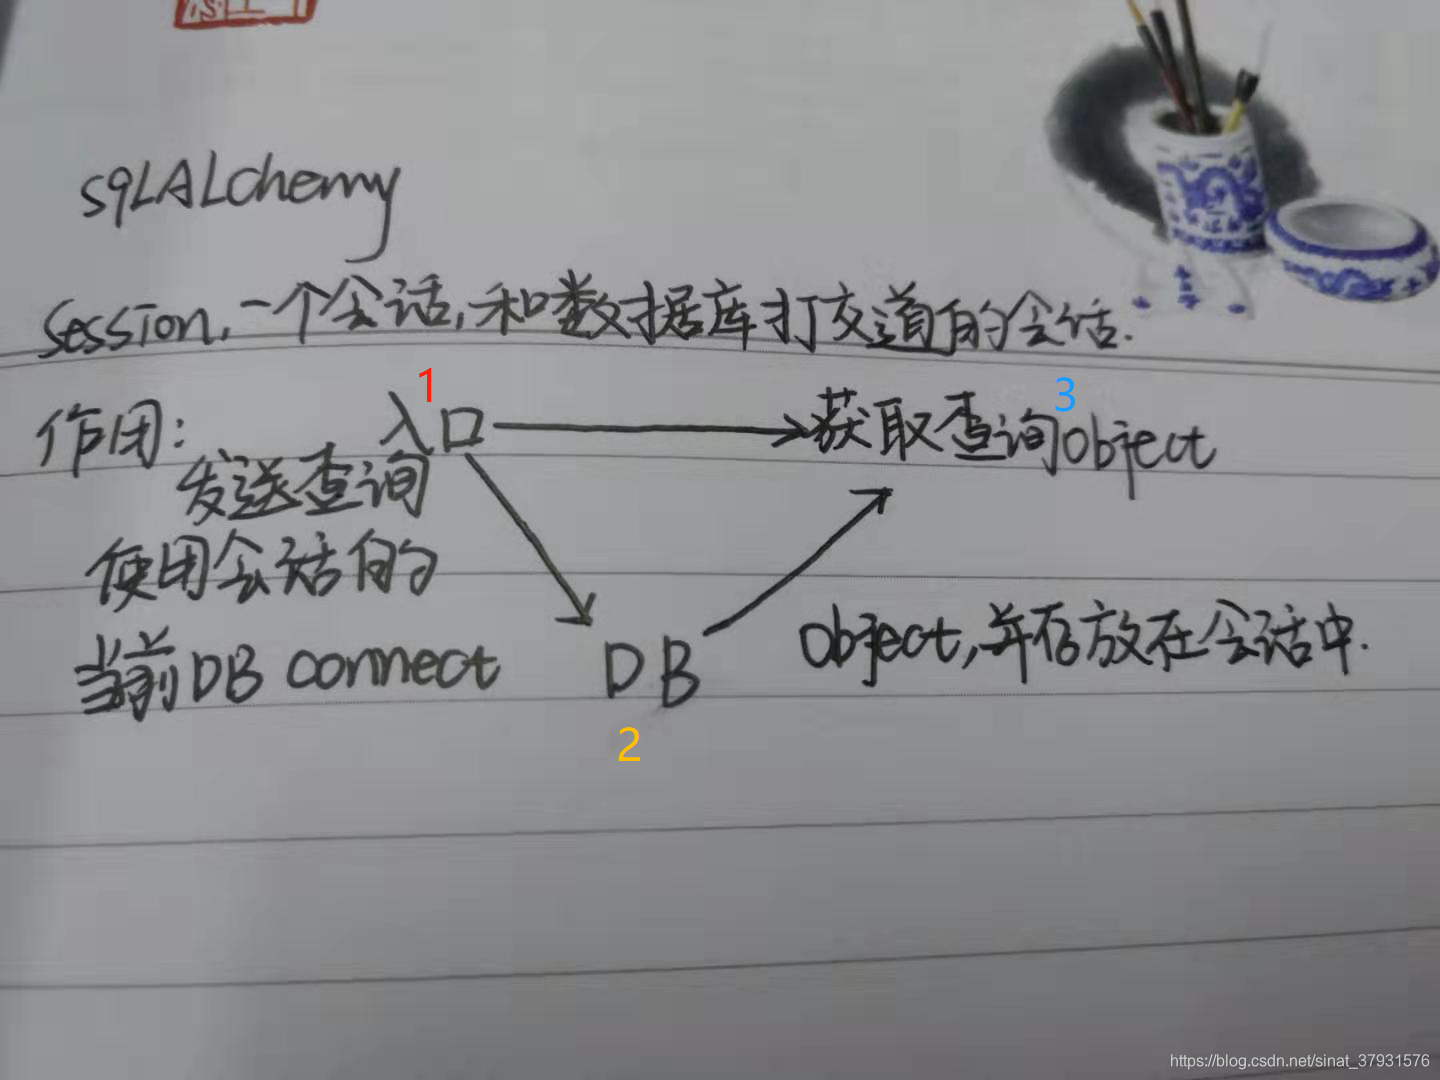 sqLALchemy
session,一个会话,和数据库打交道的会话.
1
3
作用:
入口
获取查询object
发送查询
使用会话的
当前DB connect
DB
object,并存放在会话中.
2
https://blog.csdn.net/sinat_37931576